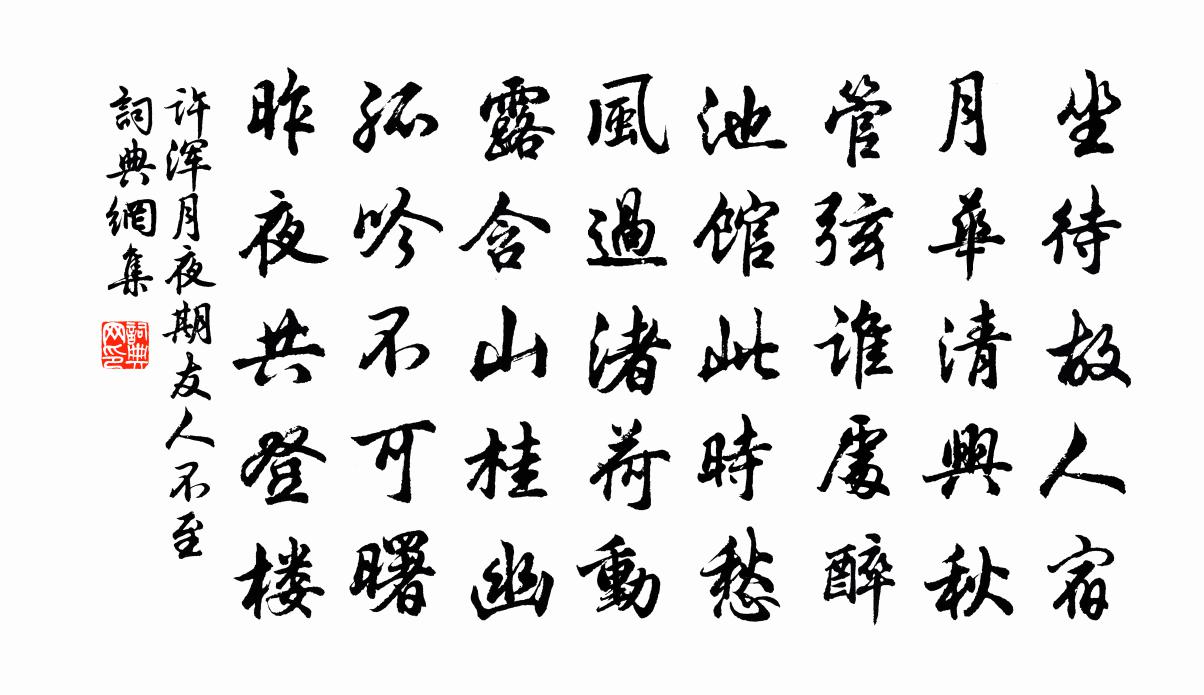 坐待故人宿
月華清興秋
管弦誰處醉
池館此時愁
風過渚荷動
露含山桂幽
孤吟不可曙
昨夜共登楼
许浑月夜期友人不至
詞典網集
詞典网印